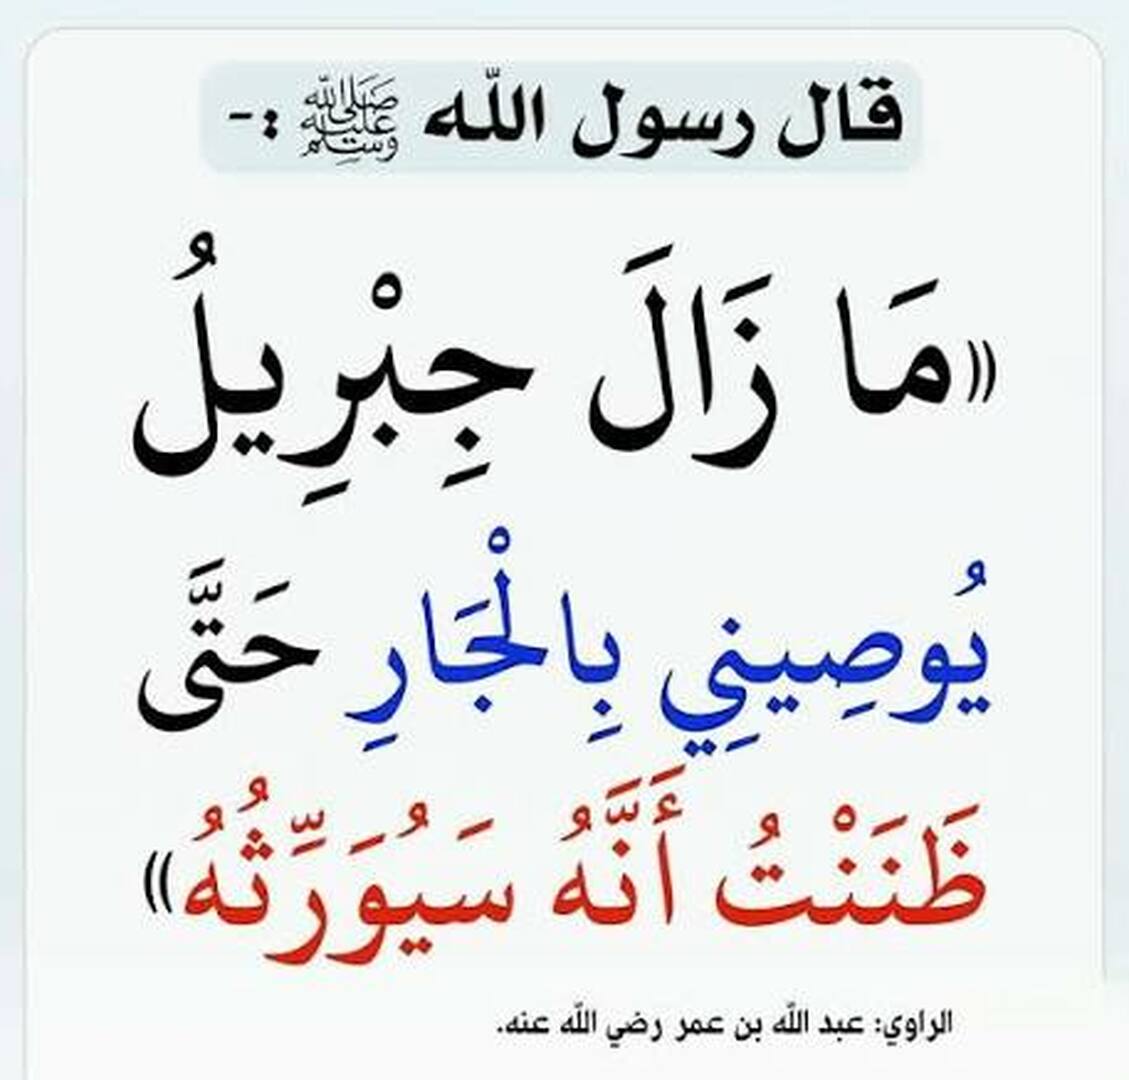 قال رسول الله ﷺ :-
«مَا زَالَ جِبْرِيلُ
يُوصِينِي بِالْجَارِ حَتَّى
ظَنَنْتُ أَنَّهُ سَيُوَرِّثُهُ»
الراوي: عبد الله بن عمر رضي الله عنه.